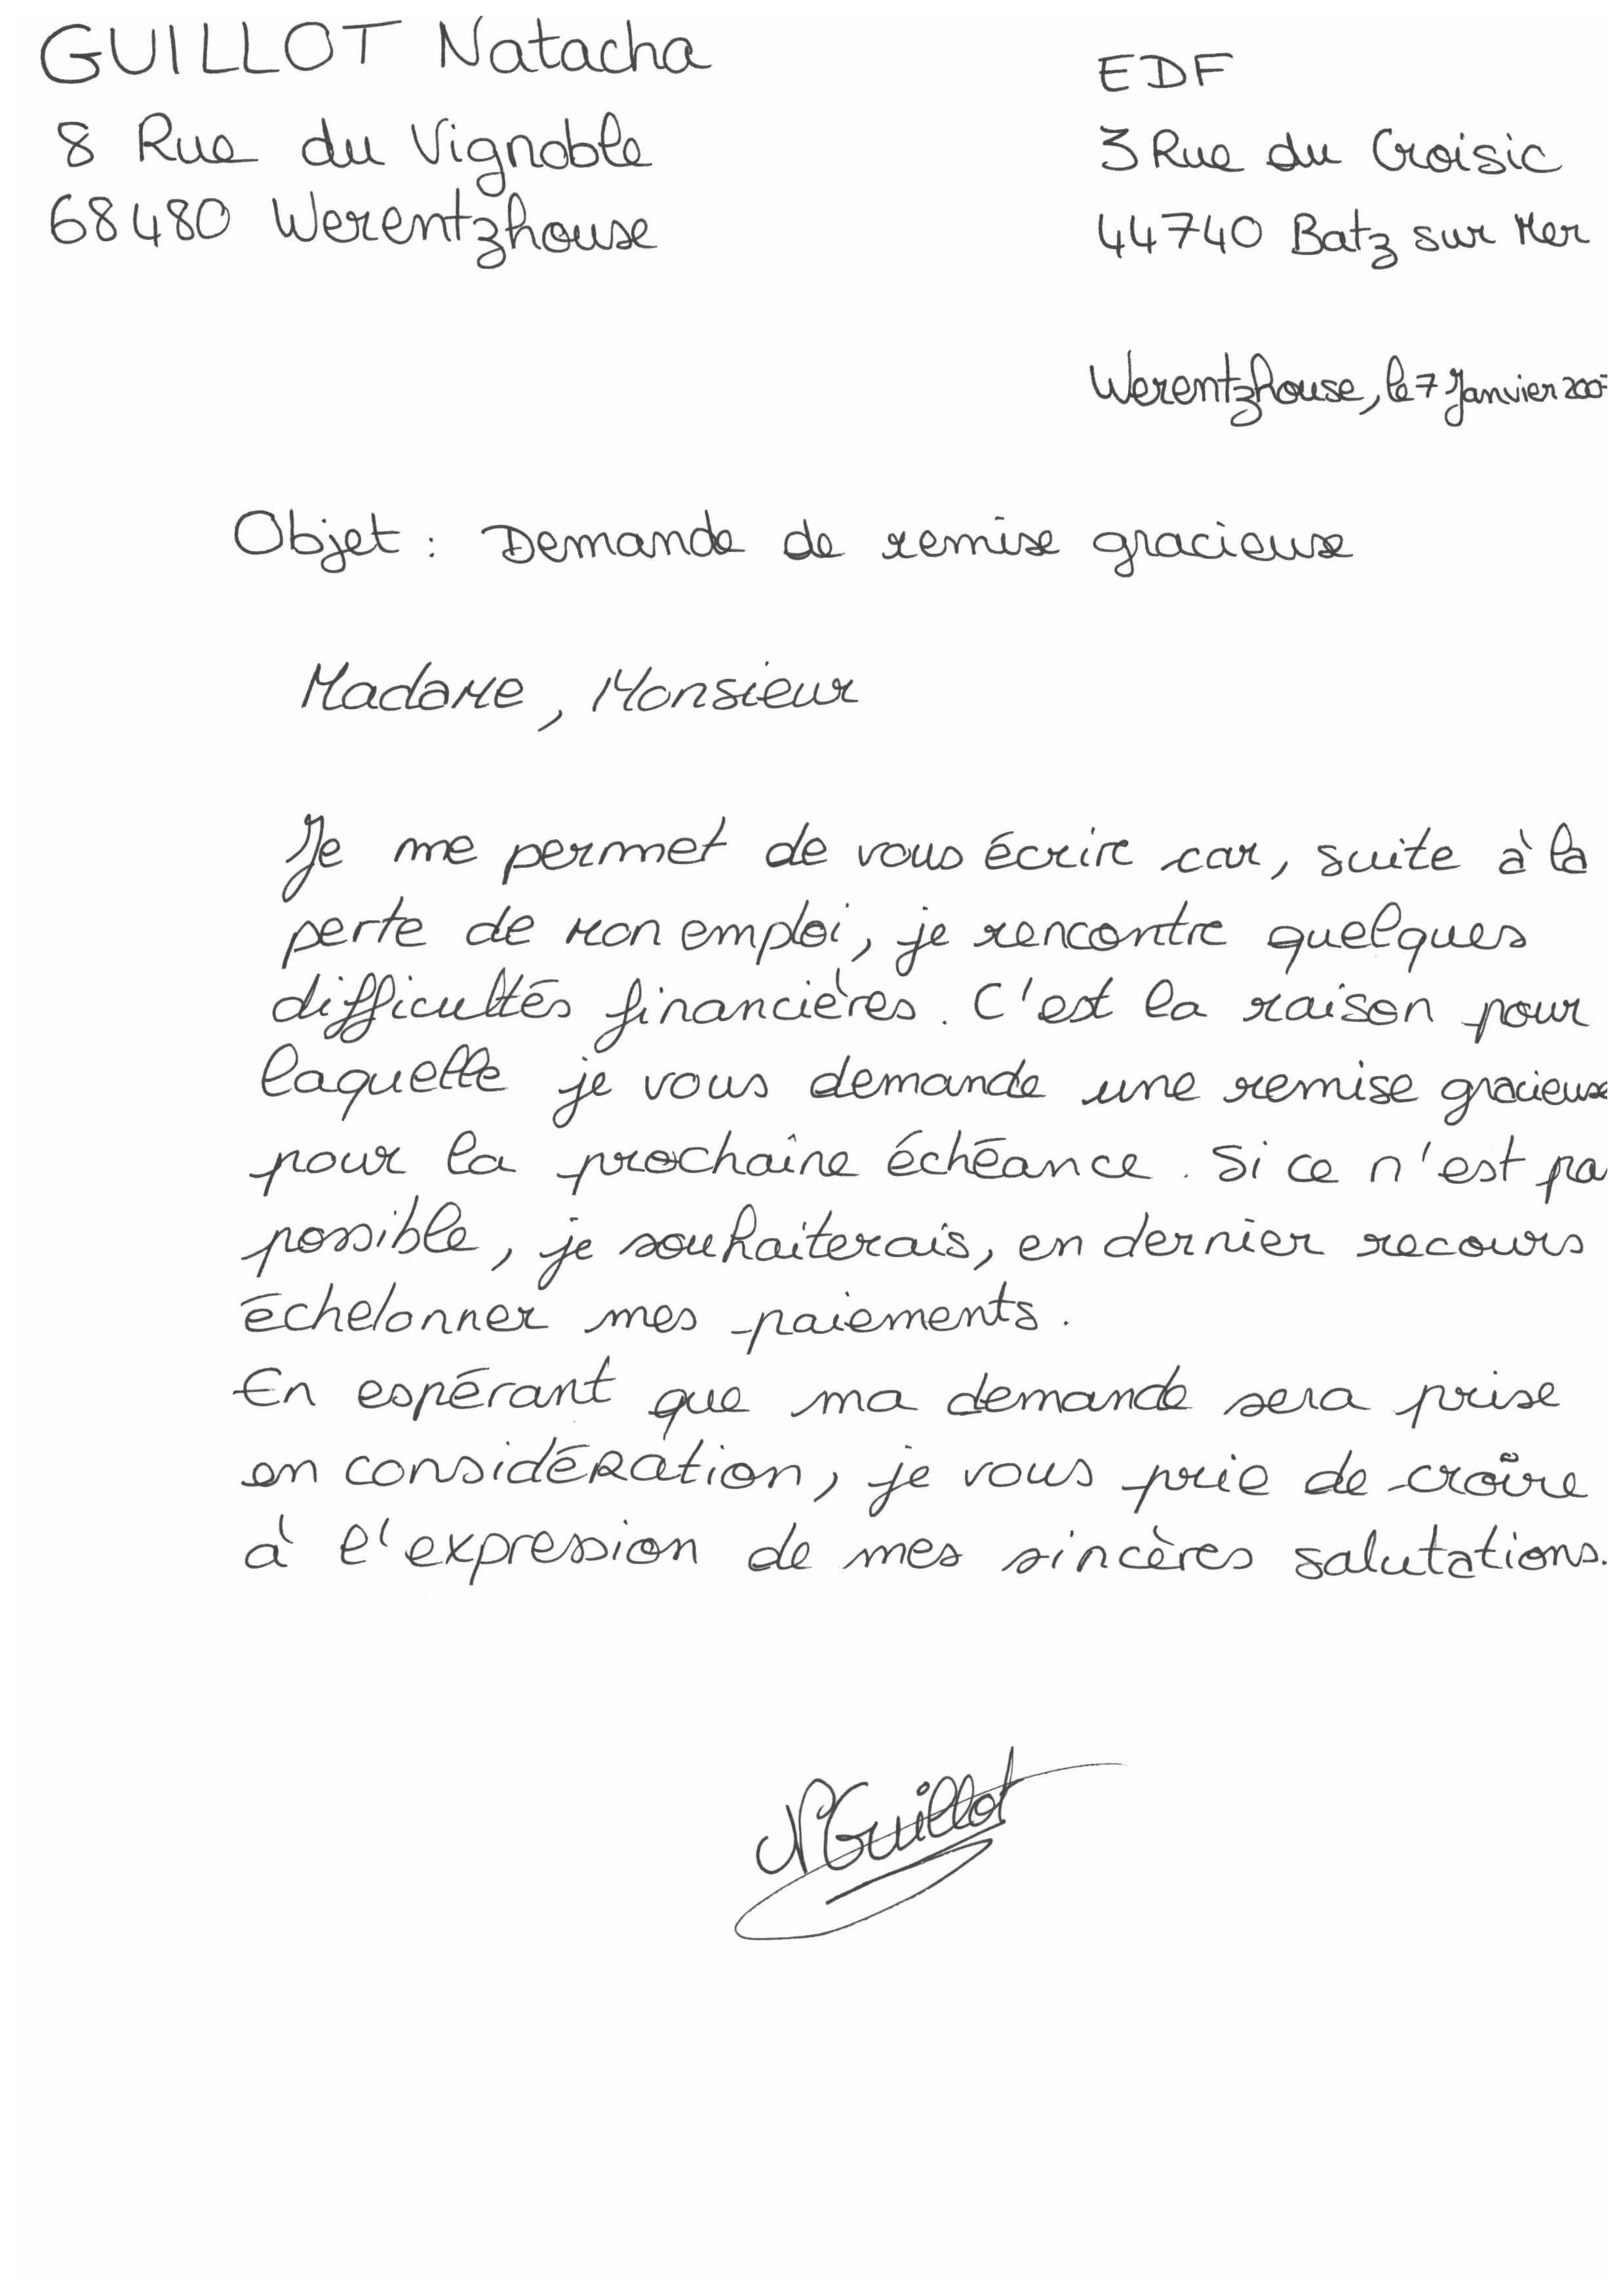 GUILLOT Natacha
8 Rue du Vignoble
68480 Werentzhouse
EDF
3 Rue du Croisic
44740 Batz sur Mer
Werentzhouse, le 7 Janvier
Objet : Demande de remise gracieuse
Madame, Monsieur
Je me permet de vous écrire car, suite à la
perte de mon emploi, je rencontre quelques
difficultés financières. C'est la raison pour
laquelle je vous demande une remise gracieuse
pour la prochaine échéance. Si ce n'est pa
possible, je souhaiterais, en dernier recours
échelonner mes paiements.
En espérant que ma demande sera prise
en considération, je vous prie de croîre
à l'expression de mes sincères salutations.
N Guillot